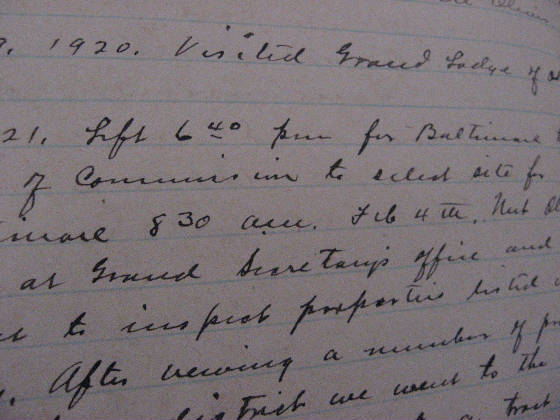 1920. Visited Grand Lodge of
21. Left 6 40 pm for Baltimore
of Commission to select site for
8 30 a.m. Feb 4th. Met
at Grand Secretary's office and
to inspect properties listed
After viewing a number of
district we went to the
a tract